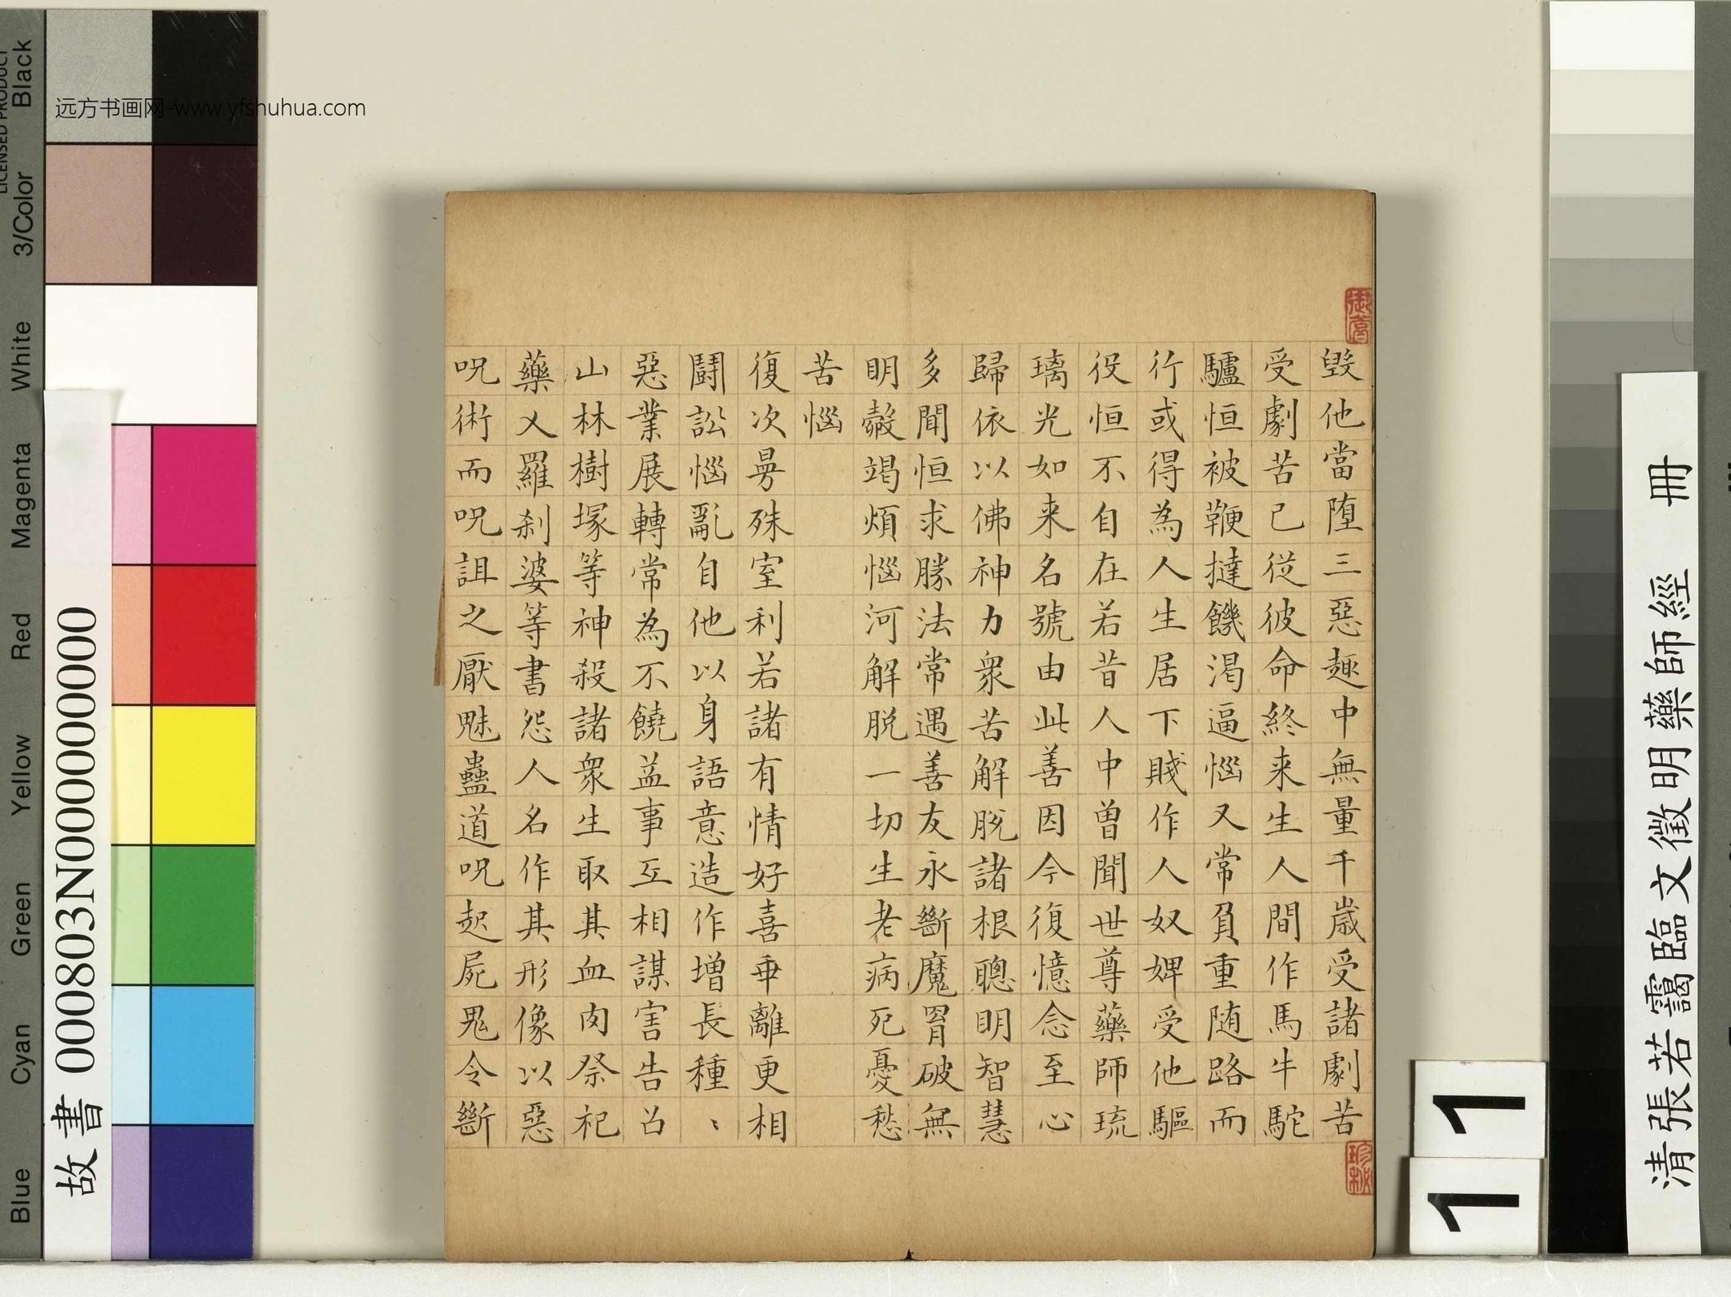 毀他當堕三惡趣中無量千歲受諸劇苦
受劇苦已從彼命終来生人間作馬牛駝
驢恒被鞭撻饑渴逼惱又常負重随路而
行或得為人生居下賤作人奴婢受他驅
役恒不自在若昔人中曾聞世尊藥師琉
璃光如来名號由此善因今復憶念至心
歸依以佛神力衆苦解脫諸根聰明智慧
多聞恒求勝法常遇善友永斷魔罥破無
明㲉竭煩惱河解脱一切生老病死憂愁
苦惱
復次曼殊室利若諸有情好喜乖離更相
鬪訟惱亂自他以身語意造作增長種、
惡業展轉常為不饒益事互相謀害告召
山林樹塚等神殺諸衆生取其血肉祭祀
藥乂羅刹婆等書怨人名作其形像以惡
呪術而呪詛之厭魅蠱道呪起屍鬼令斷
清張若靄臨文徵明藥師經 冊
11
故書 000803N000000000
远方书画网-www.yfshuhua.com
Blue Cyan Green Yellow Red Magenta White 3/Color Black
LICENSED PRODUCT